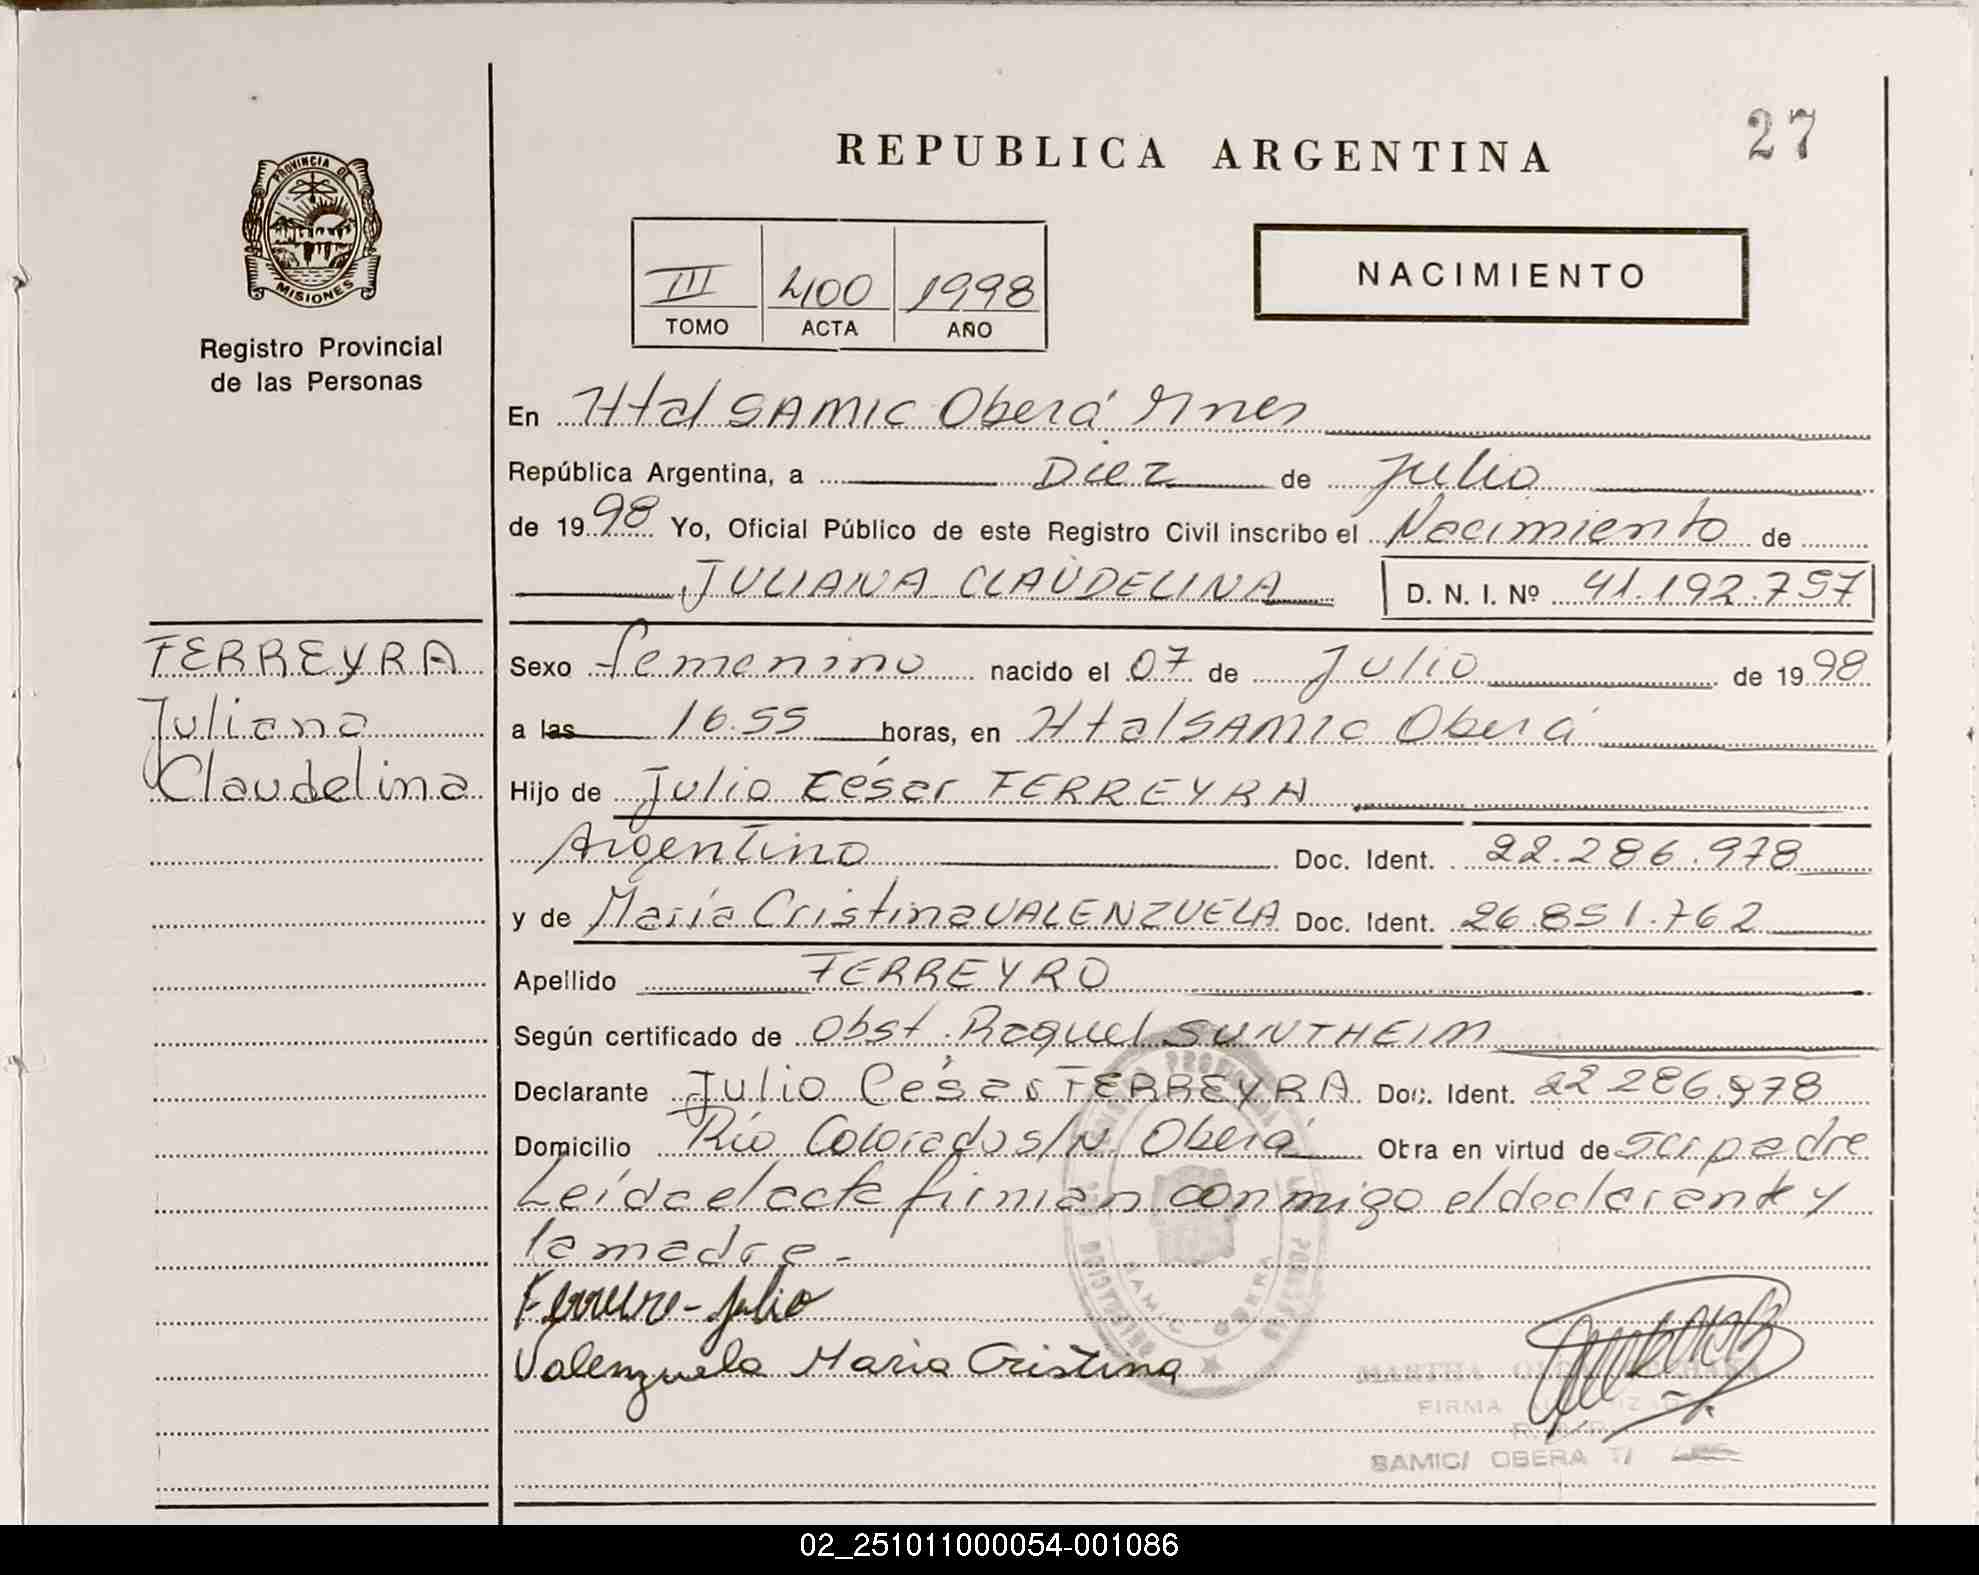 REPUBLICA ARGENTINA
27
PROVINCIA DE
MISIONES
Registro Provincial
de las Personas
III 400 1998
TOMO ACTA AÑO
NACIMIENTO
En Htal SAMIC Oberá Mnes
República Argentina, a Diez de Julio
de 1998 Yo, Oficial Público de este Registro Civil inscribo el Nacimiento de
JULIANA CLAUDELINA D. N. I. Nº 41.192.757
FERREYRA
Juliana
Claudelina
Sexo femenino nacido el 07 de Julio de 1998
a las 16.55 horas, en Htal SAMIC Oberá
Hijo de Julio César FERREYRA
Argentino Doc. Ident. 22.286.978
y de María Cristina VALENZUELA Doc. Ident. 26.851.762
Apellido FERREYRO
Según certificado de Obst. Raquel SUNTHEIM
Declarante Julio César FERREYRA Doc. Ident. 22 286.978
Domicilio Río Colorado s/N. Oberá Obra en virtud de ser padre
Leída el acta firman conmigo el declarante y
la madre.-
Ferreire - Julio
Valenzuela Maria Cristina
MARTHA
FIRMA
SAMIC/ OBERA
02_251011000054-001086